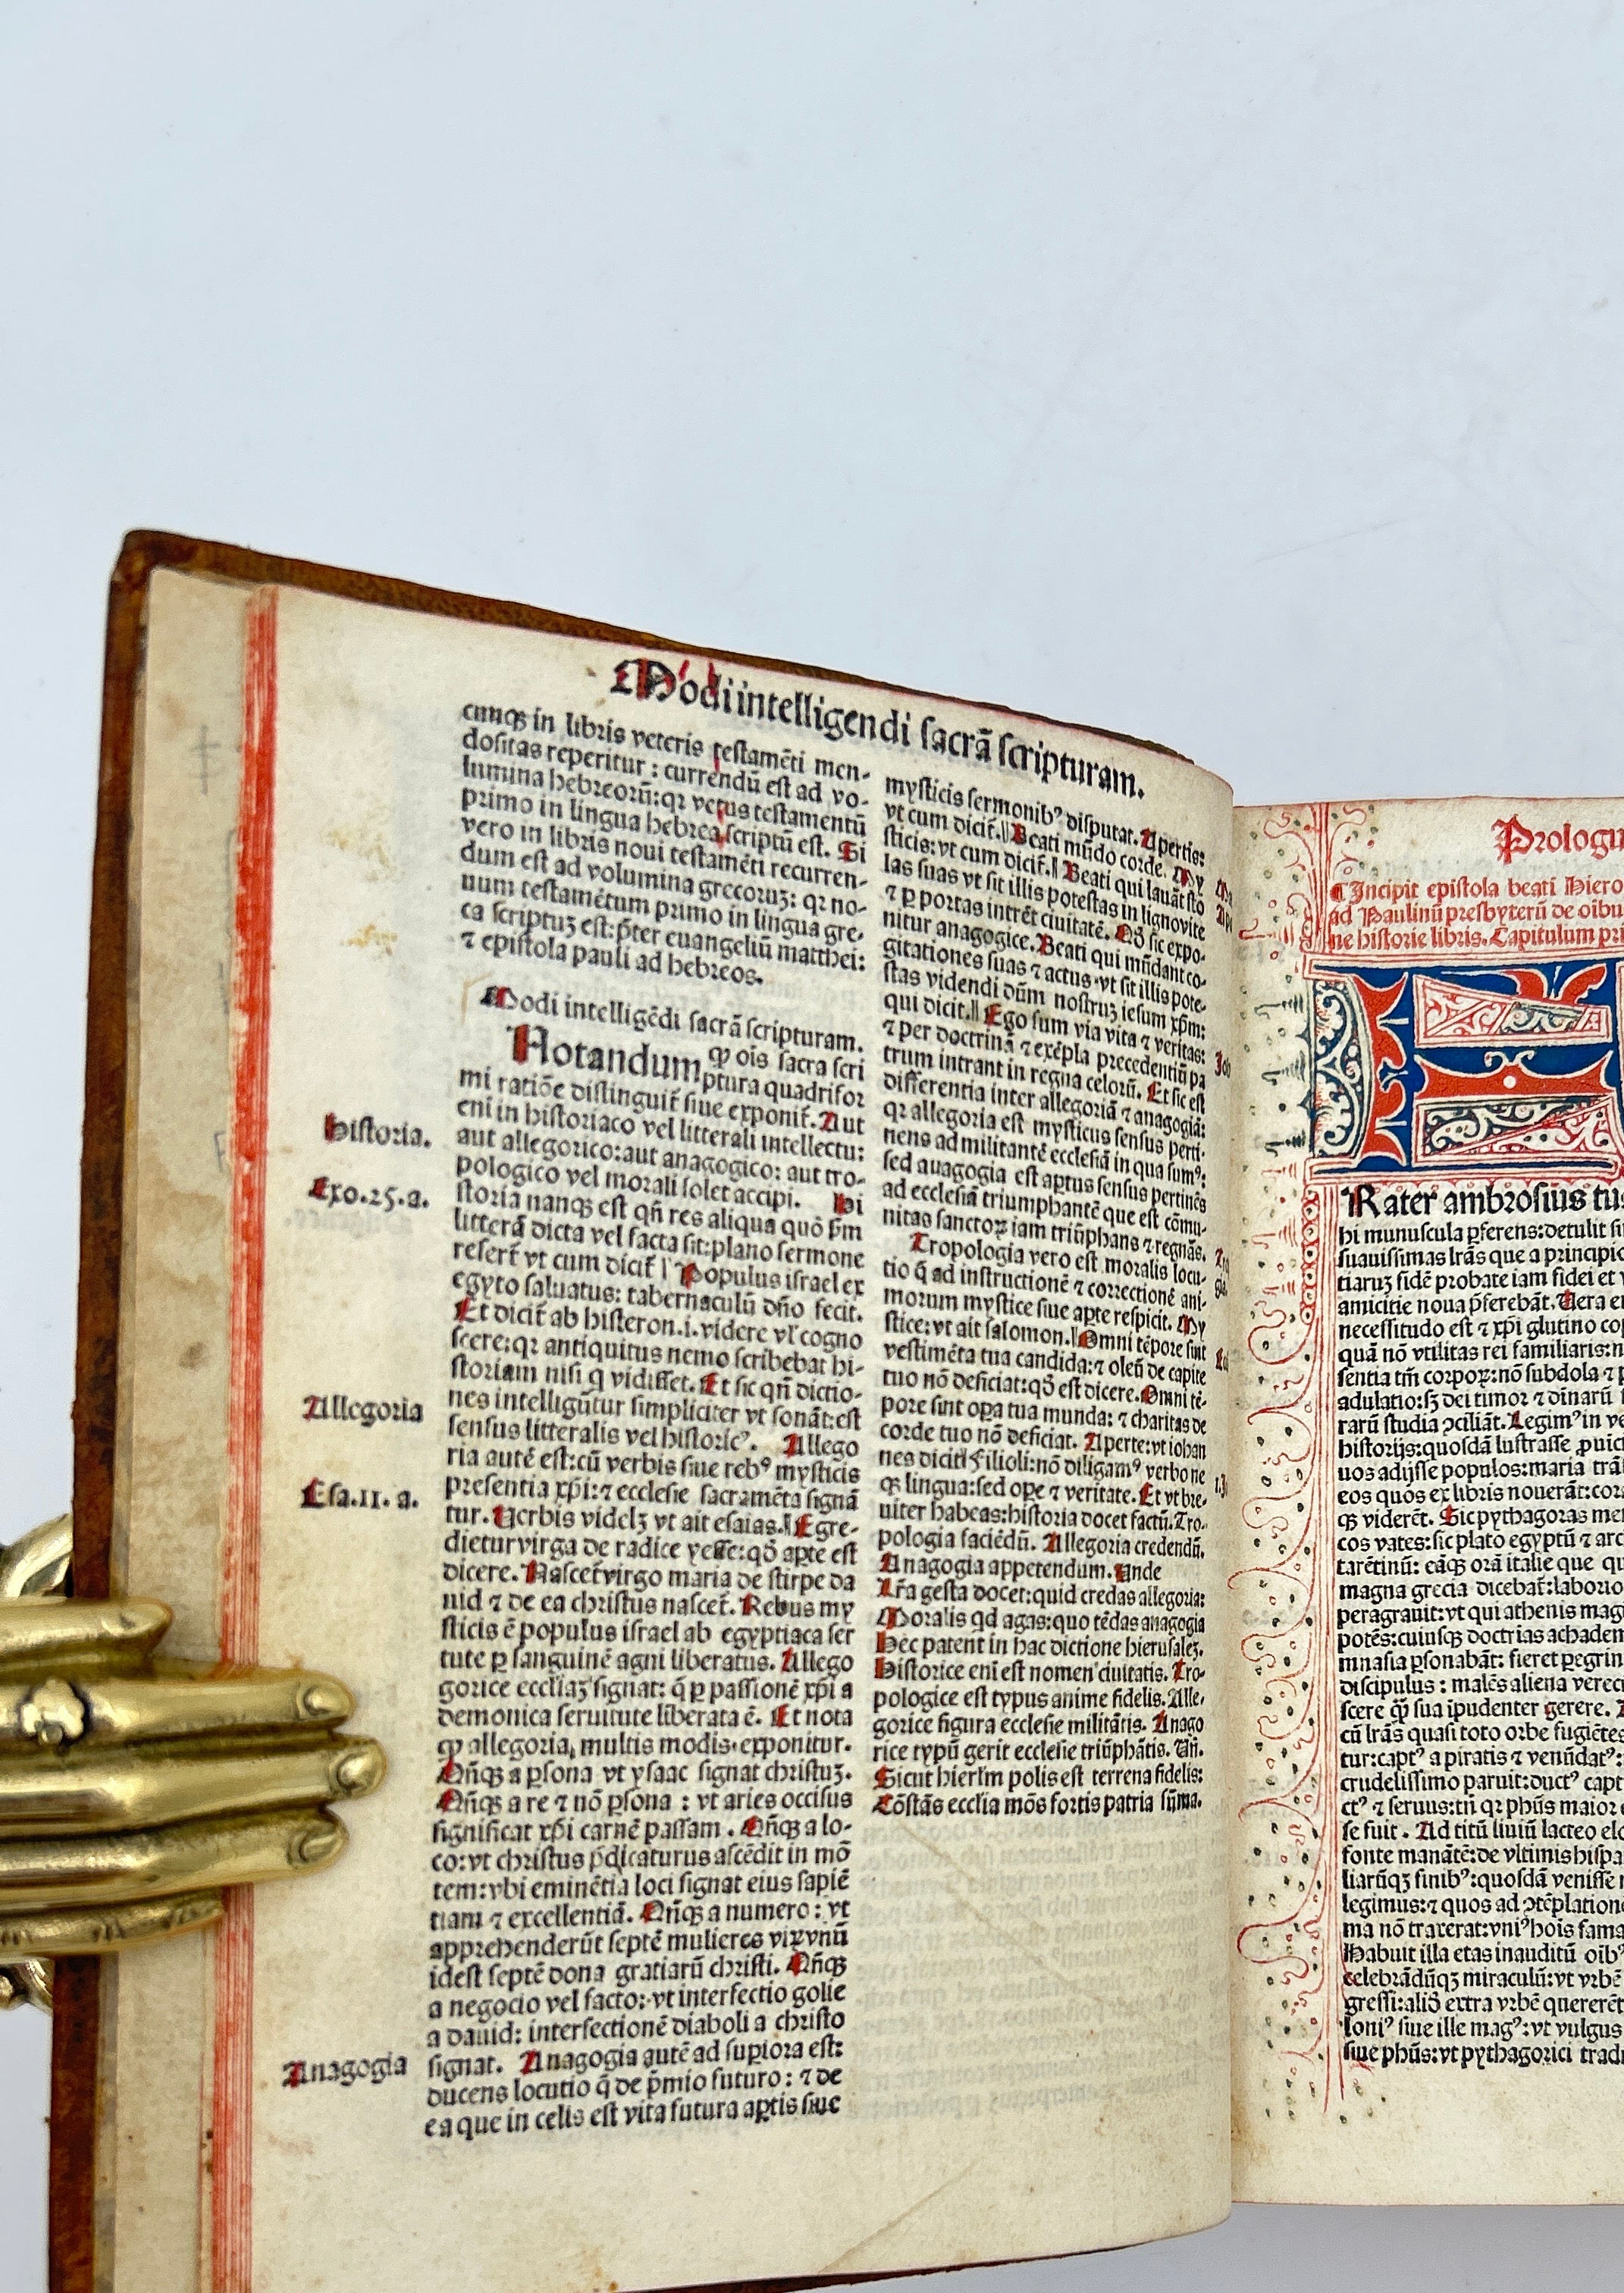 Modi intelligendi sacrā scripturam.
cunqꝫ in libris veteris testamēti men-
dositas reperitur: currendū est ad vo-
lumina hebreorū: qꝛ vetus testamentū
primo in lingua hebrea scriptū est. Si
vero in libris noui testamēti recurren-
dum est ad volumina grecoruꝫ: qꝛ no-
uum testamētum primo in lingua gre-
ca scriptuꝫ est: p̄ter euangeliū matthei:
⁊ epistola pauli ad hebreos.
Modi intelligēdi sacrā scripturam.
Notandum ꝙ oīs sacra scri
ptura quadrifor
mi ratiōe distinguit̄ siue exponit̄. Aut
eni in historiaco vel litterali intellectu:
aut allegorico: aut anagogico: aut tro-
pologico vel morali solet accipi. Hi
Historia.
storia nanqꝫ est qn̄ res aliqua quō ẜm
Exo.25.a.
litterā dicta vel facta sit: plano sermone
refert̄ vt cum dicit̄ ‖ Populus israel ex
egypto saluatus: tabernaculū dn̄o fecit.
Et dicit̄ ab histeron .i. videre vl̓ cogno
scere: qꝛ antiquitus nemo scribebat hi-
storiam nisi q̄ vidisset. Et sic qn̄ dictio-
nes intelligūtur simpliciter vt sonāt: est
sensus litteralis vel historicꝰ. Allego
Allegoria
ria autē est: cū verbis siue rebꝰ mysticis
presentia xp̄i: ⁊ ecclesie sacramēta signā
Esa.11. a.
tur. Verbis videlꝫ vt ait esaias. ‖ Egre-
dietur virga de radice yesse: qd̄ aꝑte est
dicere. Nascet̄ virgo maria de stirpe da
uid ⁊ de ea christus nascet̄. Rebus my
sticis ē populus israel ab egyptiaca ser
tute ꝑ sanguinē agni liberatus. Allego
gorice eccliaꝫ signat: q̄ ꝑ passionē xp̄i a
demonica seruitute liberata ē. Et nota
ꝙ allegoria multis modis exponitur.
Qn̄qꝫ a ꝑsona vt ysaac signat christuꝫ.
Qn̄qꝫ a re ⁊ nō ꝑsona: vt aries occisus
significat xp̄i carnē passam. Qn̄qꝫ a lo-
co: vt christus p̄dicaturus ascēdit in mō
tem: vbi eminētia loci signat eius sapiē
tiam ⁊ excellentiā. Qn̄qꝫ a numero: vt
apprehenderūt septē mulieres viꝝ vnū
idest septē dona gratiarū christi. Qn̄qꝫ
a negocio vel facto: vt interfectio golie
a dauid: interfectionē diaboli a christo
signat. Anagogia autē ad suꝑiora est:
Anagogia
ducens locutio q̄ de p̄mio futuro: ⁊ de
ea que in celis est vita futura aꝑtis siue
mysticis sermonibꝰ disputat. Apertis:
vt cum dicit̄. ‖ Beati mūdo corde. My
sticis: vt cum dicit̄. ‖ Beati qui lauāt sto
las suas vt sit illis potestas in ligno vite
⁊ ꝑ portas intrēt ciuitatē. Qd̄ sic expo-
nitur anagogice. Beati qui mūdant co-
gitationes suas ⁊ actus vt sit illis pote-
stas videndi dūm nostruꝫ iesum xp̄m:
qui dicit. ‖ Ego sum via vita ⁊ veritas:
⁊ per doctrinā ⁊ exēpla precedentiū pa
trum intrant in regna celorū. Et sic est
differentia inter allegoriā ⁊ anagogiā:
qꝛ allegoria est mysticus sensus perti-
nens ad militantē ecclesiā in qua sumꝰ:
sed anagogia est aꝑtus sensus pertinēs
ad ecclesiā triumphantē que est cōmu-
nitas sanctoꝝ iam triūphans ⁊ regnās.
Tropologia vero est moralis locu-
tio q̄ ad instructionē ⁊ correctionē ani-
morum mystice siue aꝑte respicit. My
stice: vt ait salomon. ‖ Omni tēpore sint
vestimēta tua candida: ⁊ oleū de capite
tuo nō deficiat: qd̄ est dicere. Omni tē-
pore sint oꝑa tua munda: ⁊ charitas de
corde tuo nō deficiat. Aperte: vt iohan
nes dicit ‖ Filioli: nō diligamꝰ verbo ne
qꝫ lingua: sed oꝑe ⁊ veritate. Et vt bre-
uiter habeas: historia docet factū. Tro-
pologia faciēdū. Allegoria credendū.
Anagogia appetendum. Unde
Lr̄a gesta docet: quid credas allegoria:
Moralis qd agas: quo tēdas anagogia
Hec patent in hac dictione hierusaleꝫ.
Historice eni est nomen ciuitatis. Tro-
pologice est typus anime fidelis. Alle-
gorice figura ecclesie militātis. Anago
rice typū gerit ecclesie triūphātis. Un̄.
Sicut hierlm̄ polis est terrena fidelis:
Cōstās ecclīa mōs fortis patria sūma.
Prologu
Incipit epistola beati Hiero
ad Paulinū presbyterū de oību
ne historie libris. Capitulum pri
F
Rater ambrosius tu
hi munuscula ꝑferens: detulit
suauissimas lr̄as que a principio
tiaruꝫ fidē probate iam fidei et
amicitie noua p̄ferebāt. Vera
necessitudo est ⁊ xp̄i glutino
quā nō vtilitas rei familiaris:
sentia tm̄ corpoꝝ: nō subdola ⁊
adulatio: sꝫ dei timor ⁊ diuinarū
rarū studia ꝯciliāt. Legimꝰ in
historijs: quosdā lustrasse
uos adijsse populos: maria
eos quos ex libris nouerāt:
qꝫ viderēt. Sic pythagoras
cos vates: sic plato egyptū ⁊
tarētinū: eāqꝫ orā italie que
magna grecia dicebat̄:
peragrauit: vt qui athenis
potēs: cuiusqꝫ doctrīas
mnasia ꝑsonabāt: fieret ꝑegrin
discipulus: malēs aliena
scere ꝙ̄ sua īpudenter gerere.
cū lr̄as quasi toto orbe fugiētes
tur: captꝰ a piratis ⁊ venūdatꝰ:
crudelissimo paruit: ductꝰ
ctꝰ ⁊ seruus: tn̄ qꝛ phūs maior
se fuit. Ad titū liuiū lacteo
fonte manātē: de vltimis
liarūqꝫ finibꝰ: quosdā venisse
legimus: ⁊ quos ad ꝯtēplatione
ma nō traxerat: vniꝰ hoīs fama
Habuit illa etas inauditū
celebrādūqꝫ miraculū: vt vrbē
gressi: aliō extra vrbē quererēt
loniꝰ siue ille magꝰ: vt vulgus
siue phūs: vt pythagorici